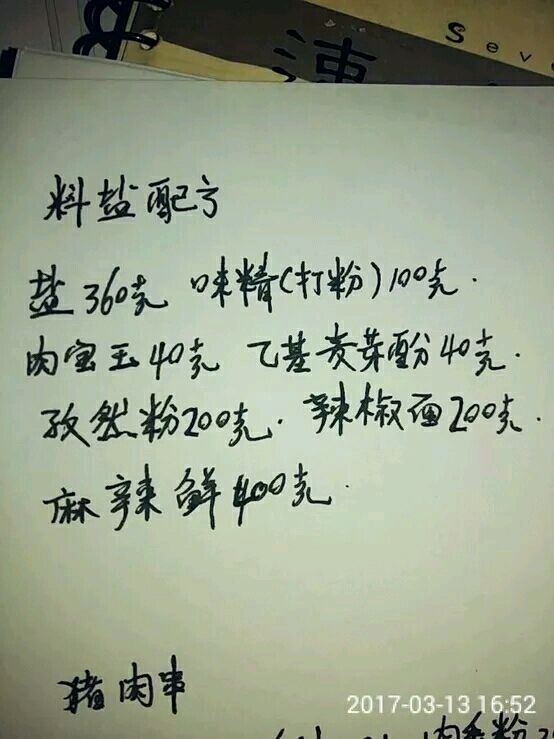 涷
Seve
料盐配方
盐360克 味精(打粉)100克.
肉宝王40克 乙基麦芽酚40克.
孜然粉200克. 辣椒面200克.
麻辣鲜400克.
猪肉串
2017-03-13 16:52
肉香粉